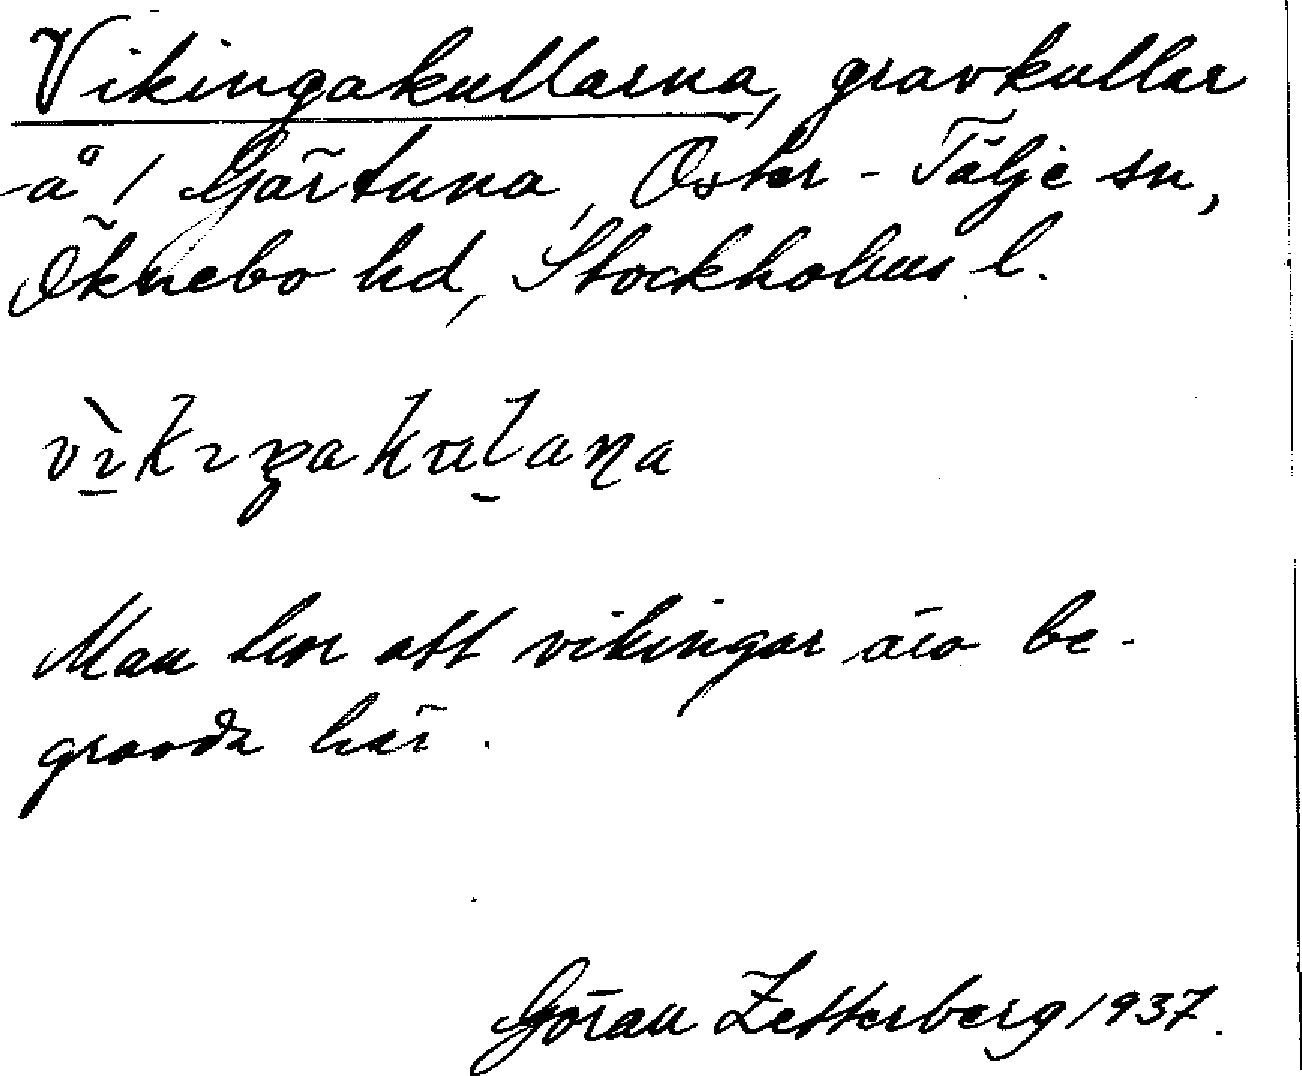 Vikingakullarna, gravkullar
å / Gärtuna, Öster-Tälje sn,
Öknebo hd, Stockholms l.
Man tror att vikingar äro be-
gravda här.
Göran Zetterberg 1937.